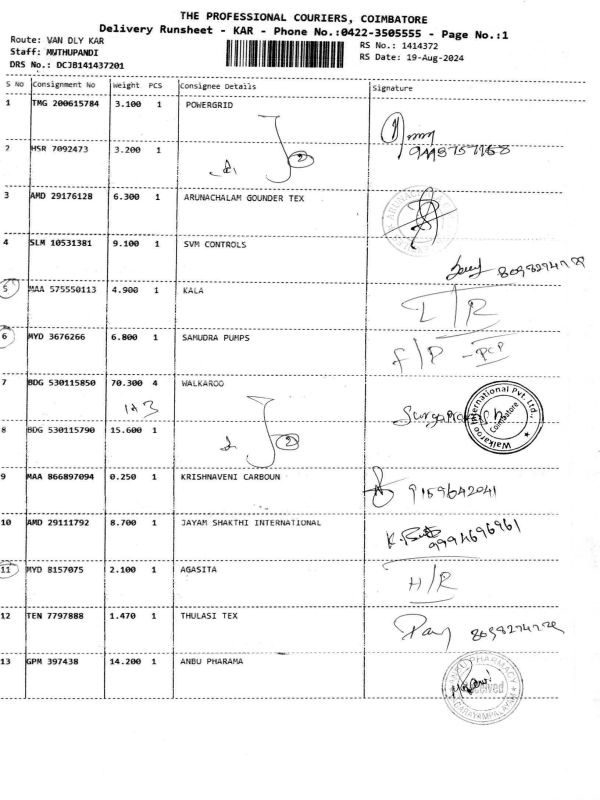 THE PROFESSIONAL COURIERS, COIMBATORE
Delivery Runsheet - KAR - Phone No.:0422-3505555 - Page No.:1
Route: VAN DLY KAR
Staff: MUTHUPANDI
DRS No.: DCJB141437201
RS No.: 1414372
RS Date: 19-Aug-2024
S No Consignment No Weight PCS Consignee Details Signature
1 TMG 200615784 3.100 1 POWERGRID
2 HSR 7092473 3.200 1
2
3 AMD 29176128 6.300 1 ARUNACHALAM GOUNDER TEX
4 SLM 10531381 9.100 1 SVM CONTROLS
5 MAA 575550113 4.900 1 KALA
I/R
6 MYD 3676266 6.800 1 SAMUDRA PUMPS
F/P - PCP
7 BDG 530115850 70.300 4 WALKAROO
1+3
Walkaroo International Pvt. Ltd., Coimbatore
8 BDG 530115790 15.600 1
2
9 MAA 866897094 0.250 1 KRISHNAVENI CARBOUN
9159642041
10 AMD 29111792 8.700 1 JAYAM SHAKTHI INTERNATIONAL
9994696961
11 MYD 8157075 2.100 1 AGASITA
H/R
12 TEN 7797888 1.470 1 THULASI TEX
13 GPM 397438 14.200 1 ANBU PHARAMA
ANBU PHARMACY
Received